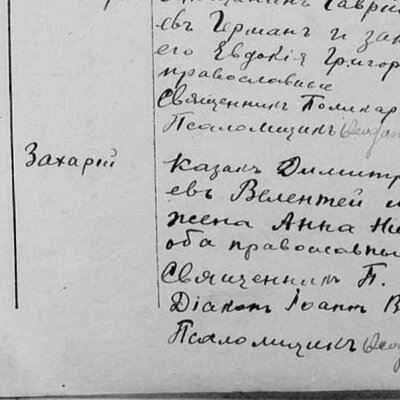 щанинъ Гаврі
евъ Германъ и зак
его Евдокія Григор
православные
Священникъ Поликар
Псаломщикъ
Захарій
Казакъ Димитр
евъ Велентей и
жена Анна Ни
оба православны
Священникъ П.
Діаконъ Іоаннъ В
Псаломщикъ